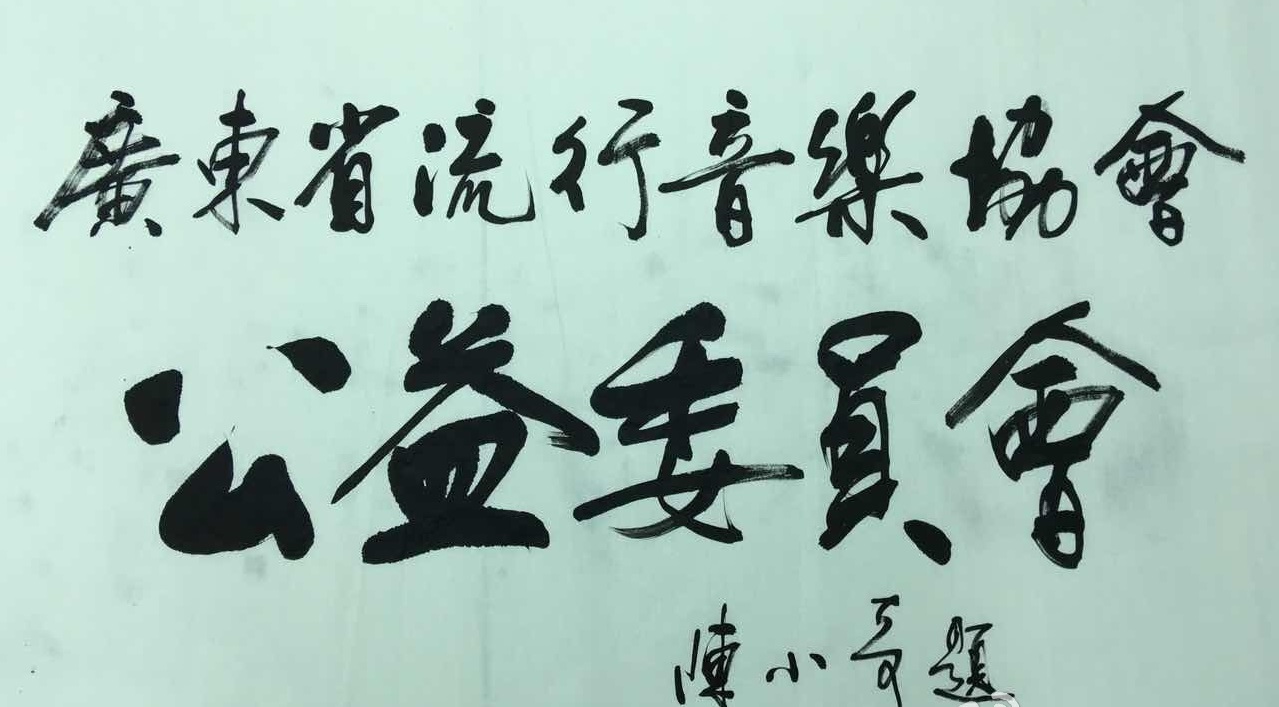 廣東省流行音樂協會
公益委員會
陳小奇題